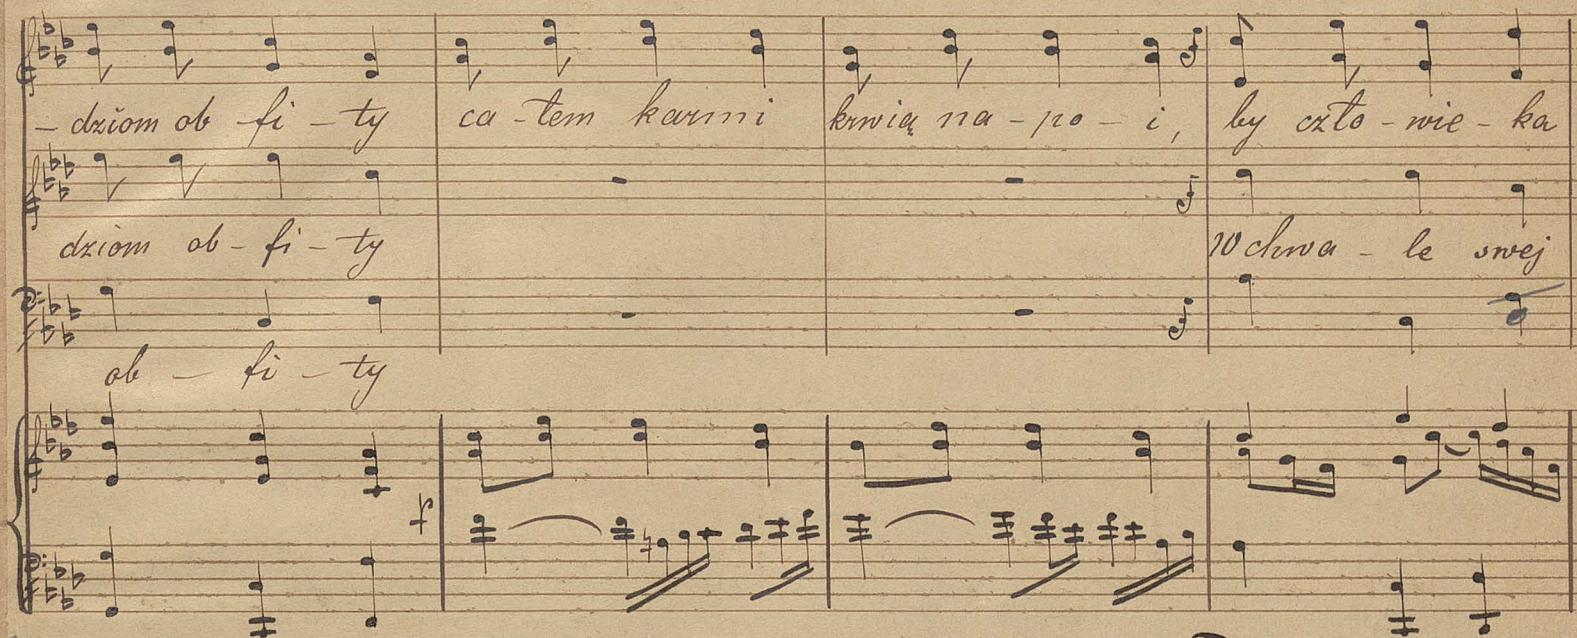 – dziom ob – fi – ty ca – łem karmi krwią na – po – i, by czło – wie – ka
dziom ob – fi – ty W chwa – le swej
ob – fi – ty